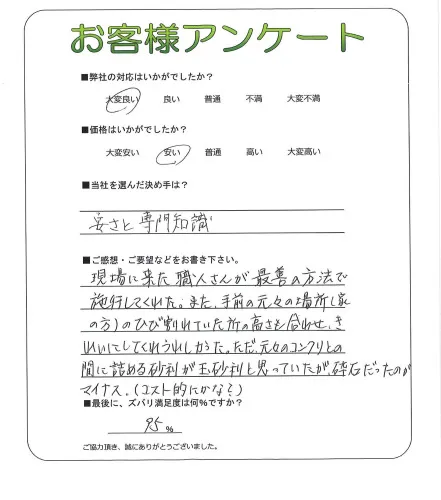 お客様アンケート
■弊社の対応はいかがでしたか？
大変良い 良い 普通 不満 大変不満
■価格はいかがでしたか？
大変安い 安い 普通 高い 大変高い
■当社を選んだ決め手は？
安さと専門知識
■ご感想・ご要望などをお書き下さい。
現場に来た職人さんが最善の方法で
施行してくれた。また、手前の元々の場所(家
の方)のひび割れていた所の高さも合わせ、き
れいにしてくれうれしかった。ただ、元々のコンクリとの
間に詰める砂利が玉砂利と思っていたが、砕石だったのが
マイナス。(コスト的にかな？)
■最後に、ズバリ満足度は何%ですか？
95 %
ご協力頂き、誠にありがとうございました。